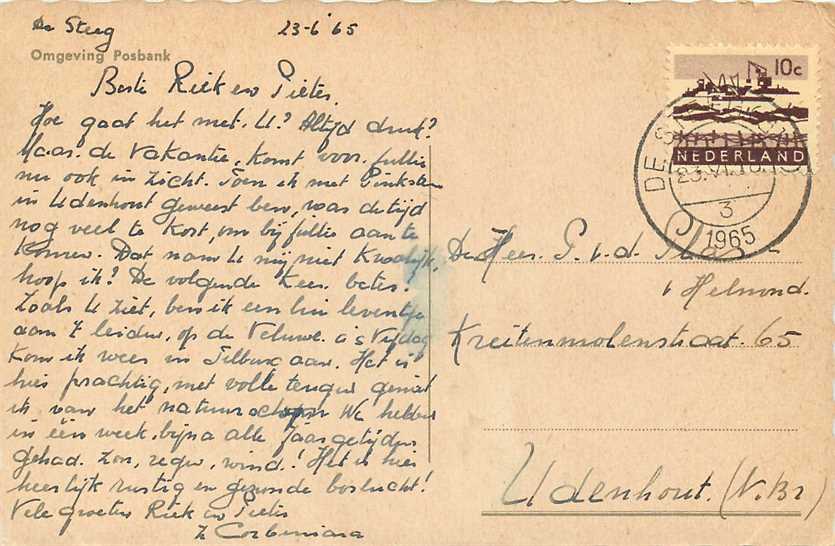 De Steeg 23-6'65
Omgeving Posbank
Beste Riek en Pieter.
Hoe gaat het met U? Altijd druk?
Maar de vakantie, komt voor jullie
nu ook in zicht. Toen ik met Pinkster
in Udenhout geweest ben, was de tijd
nog veel te kort, om bij jullie aan te
komen. Dat nam U mij niet kwalijk,
hoop ik? De volgende keer beter!
Zoals U ziet, ben ik een lui leventje
aan 't leiden, op de Veluwe. a.s. Vrijdag
kom ik weer in Tilburg aan. Het is
hier prachtig, met volle teugen geniet
ik van het natuurschoon. We hebben
in één week, bijna alle jaargetijden
gehad. Zon, regen, wind! Het is hier
heerlijk rustig en gezonde boslucht!
Vele groeten Riek en Pieter
Zr Corbiniana
10c
NEDERLAND
DE STEEG
23.VI.
3
1965
De Heer P. v. d.
v Helmond.
Kreitenmolenstraat. 65
Udenhout. (N.Br)